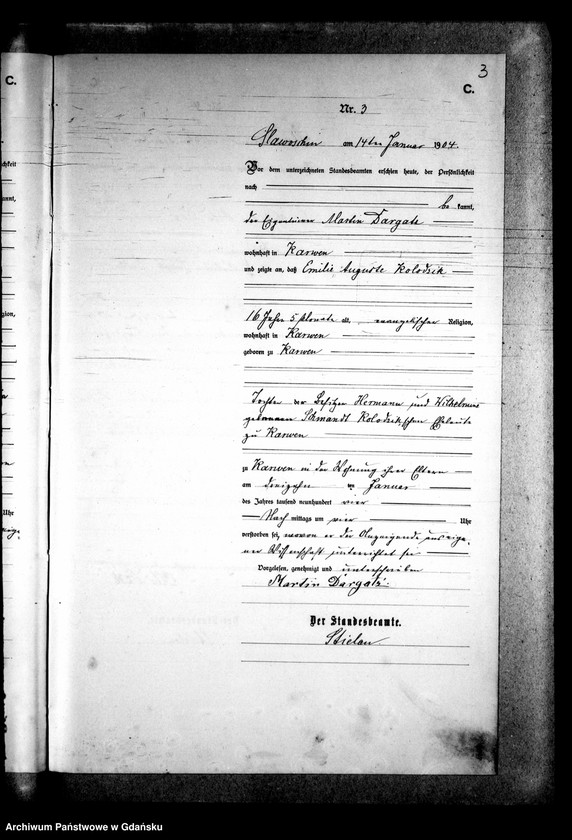 3
C.
C.
Nr. 3
Slawoschin am 14ten Januar 1904.
Vor dem unterzeichneten Standesbeamten erschien heute, der Persönlichkeit
nach
be kannt,
der Eigentümer Martin Dargatz
wohnhaft in Karwen
und zeigte an, daß Emilie Auguste Kolodzik
16 Jahre 5 Monate alt, evangelischer Religion,
wohnhaft in Karwen
geboren zu Karwen
Tochter der Besitzer Hermann und Wilhelmine
geborenen Schmandt Kolodzikschen Eheleute
zu Karwen
zu Karwen in der Wohnung ihrer Eltern
am dreizehn ten Januar
des Jahres tausend neunhundert vier
Nach mittags um vier Uhr
verstorben sei, wovon er der Anzeigende aus eige-
ner Wissenschaft unterrichtet sei
Vorgelesen, genehmigt und unterschrieben
Martin Dargatz.
Der Standesbeamte.
Stielau
Uhr
Archiwum Państwowe w Gdańsku